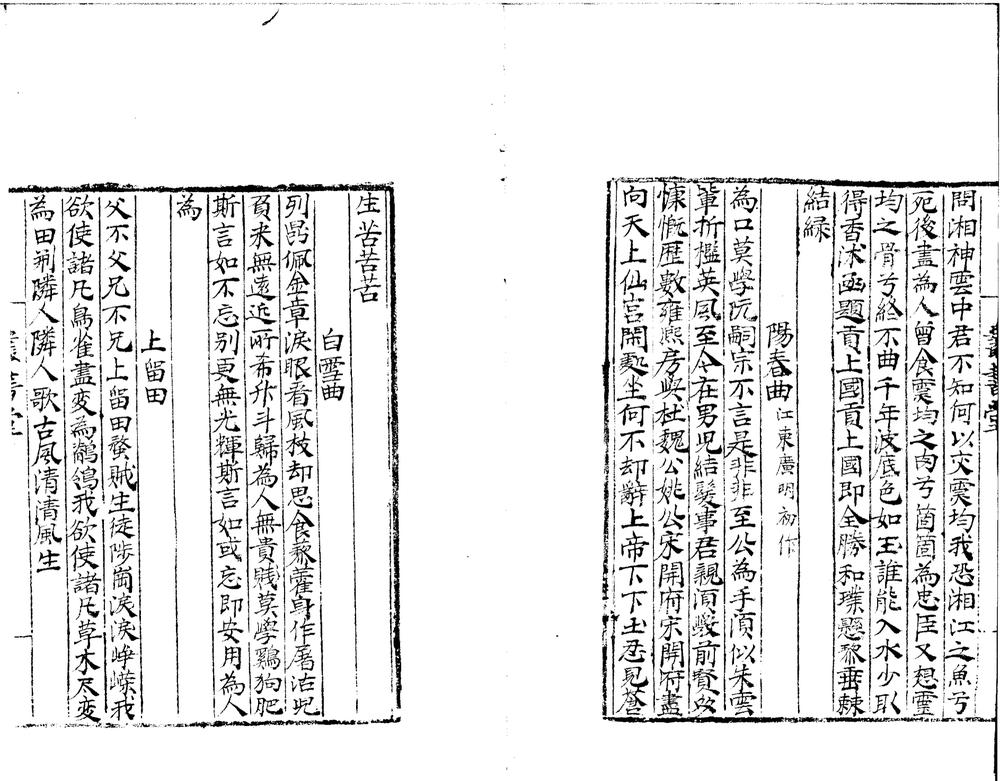 問湘神雲中君不知何以交靈均我恐湘江之魚兮
死後盡為人曾食靈均之肉兮箇箇為忠臣又想靈
均之骨兮終不曲千年波底色如玉誰能入水少取
得香沭函題貢上國貢上國即全勝和璞懸黎垂棘
結緑
陽春曲江東廣明初作
為口莫學阮嗣宗不言是非非至公為手須似朱雲
輩折檻英風至今在男兒結髮事君親須斆前賢多
慷慨歷數雍熙房與杜魏公姚公宋開府宋開府盡
向天上仙宮閑處坐何不却辭上帝下下土忍見蒼
生苦苦苦
白雪曲
列鼎佩金章淚眼看風枝却思食藜藿身作屠沽兒
負米無遠近所希升斗歸為人無貴賤莫學鷄狗肥
斯言如不忘別更無光輝斯言如或忘即安用為人
為
上留田
父不父兄不兄上留田蝥賊生徒陟崗淚淚崢嶸我
欲使諸凡鳥雀盡變為鶺鴒我欲使諸凡草木盡變
為田荆隣人隣人歌古風清清風生
叢書堂
叢書堂